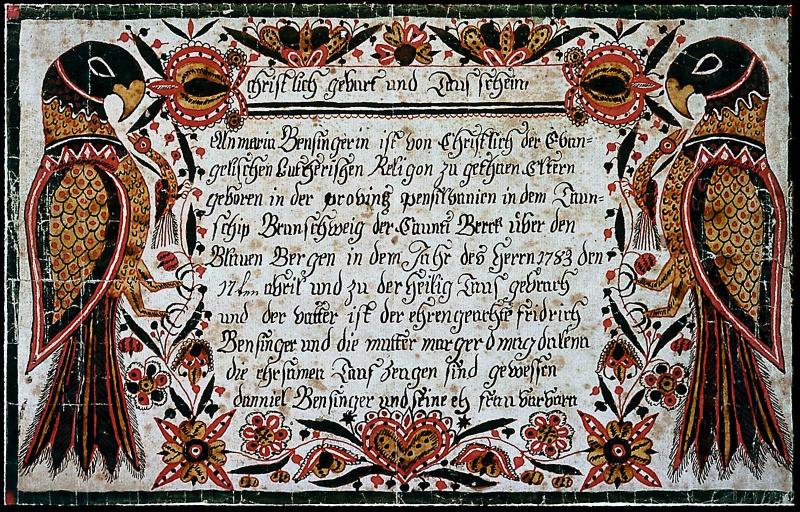 christlich geburt und Tauf schein
Anmaria Bensingerin ist von Christlich der Evan=
gelischen Lutherischen Religon zu gethaen Eltern
geboren in der provintz pensilvanien in dem Taun=
schip Brunschweig der Caunti Berck über den
Blauen Bergen in dem Jahr des Herrn 1783 den
17ten abrill und zu der Heilig Tauf gebrach
und der vatter ist der ehrengeachte fridrich
Bensinger und die mutter margerd magdalena
die ehrsamen Tauf zeugen sind gewessen
danniel Bensinger und seine eh frau barbara